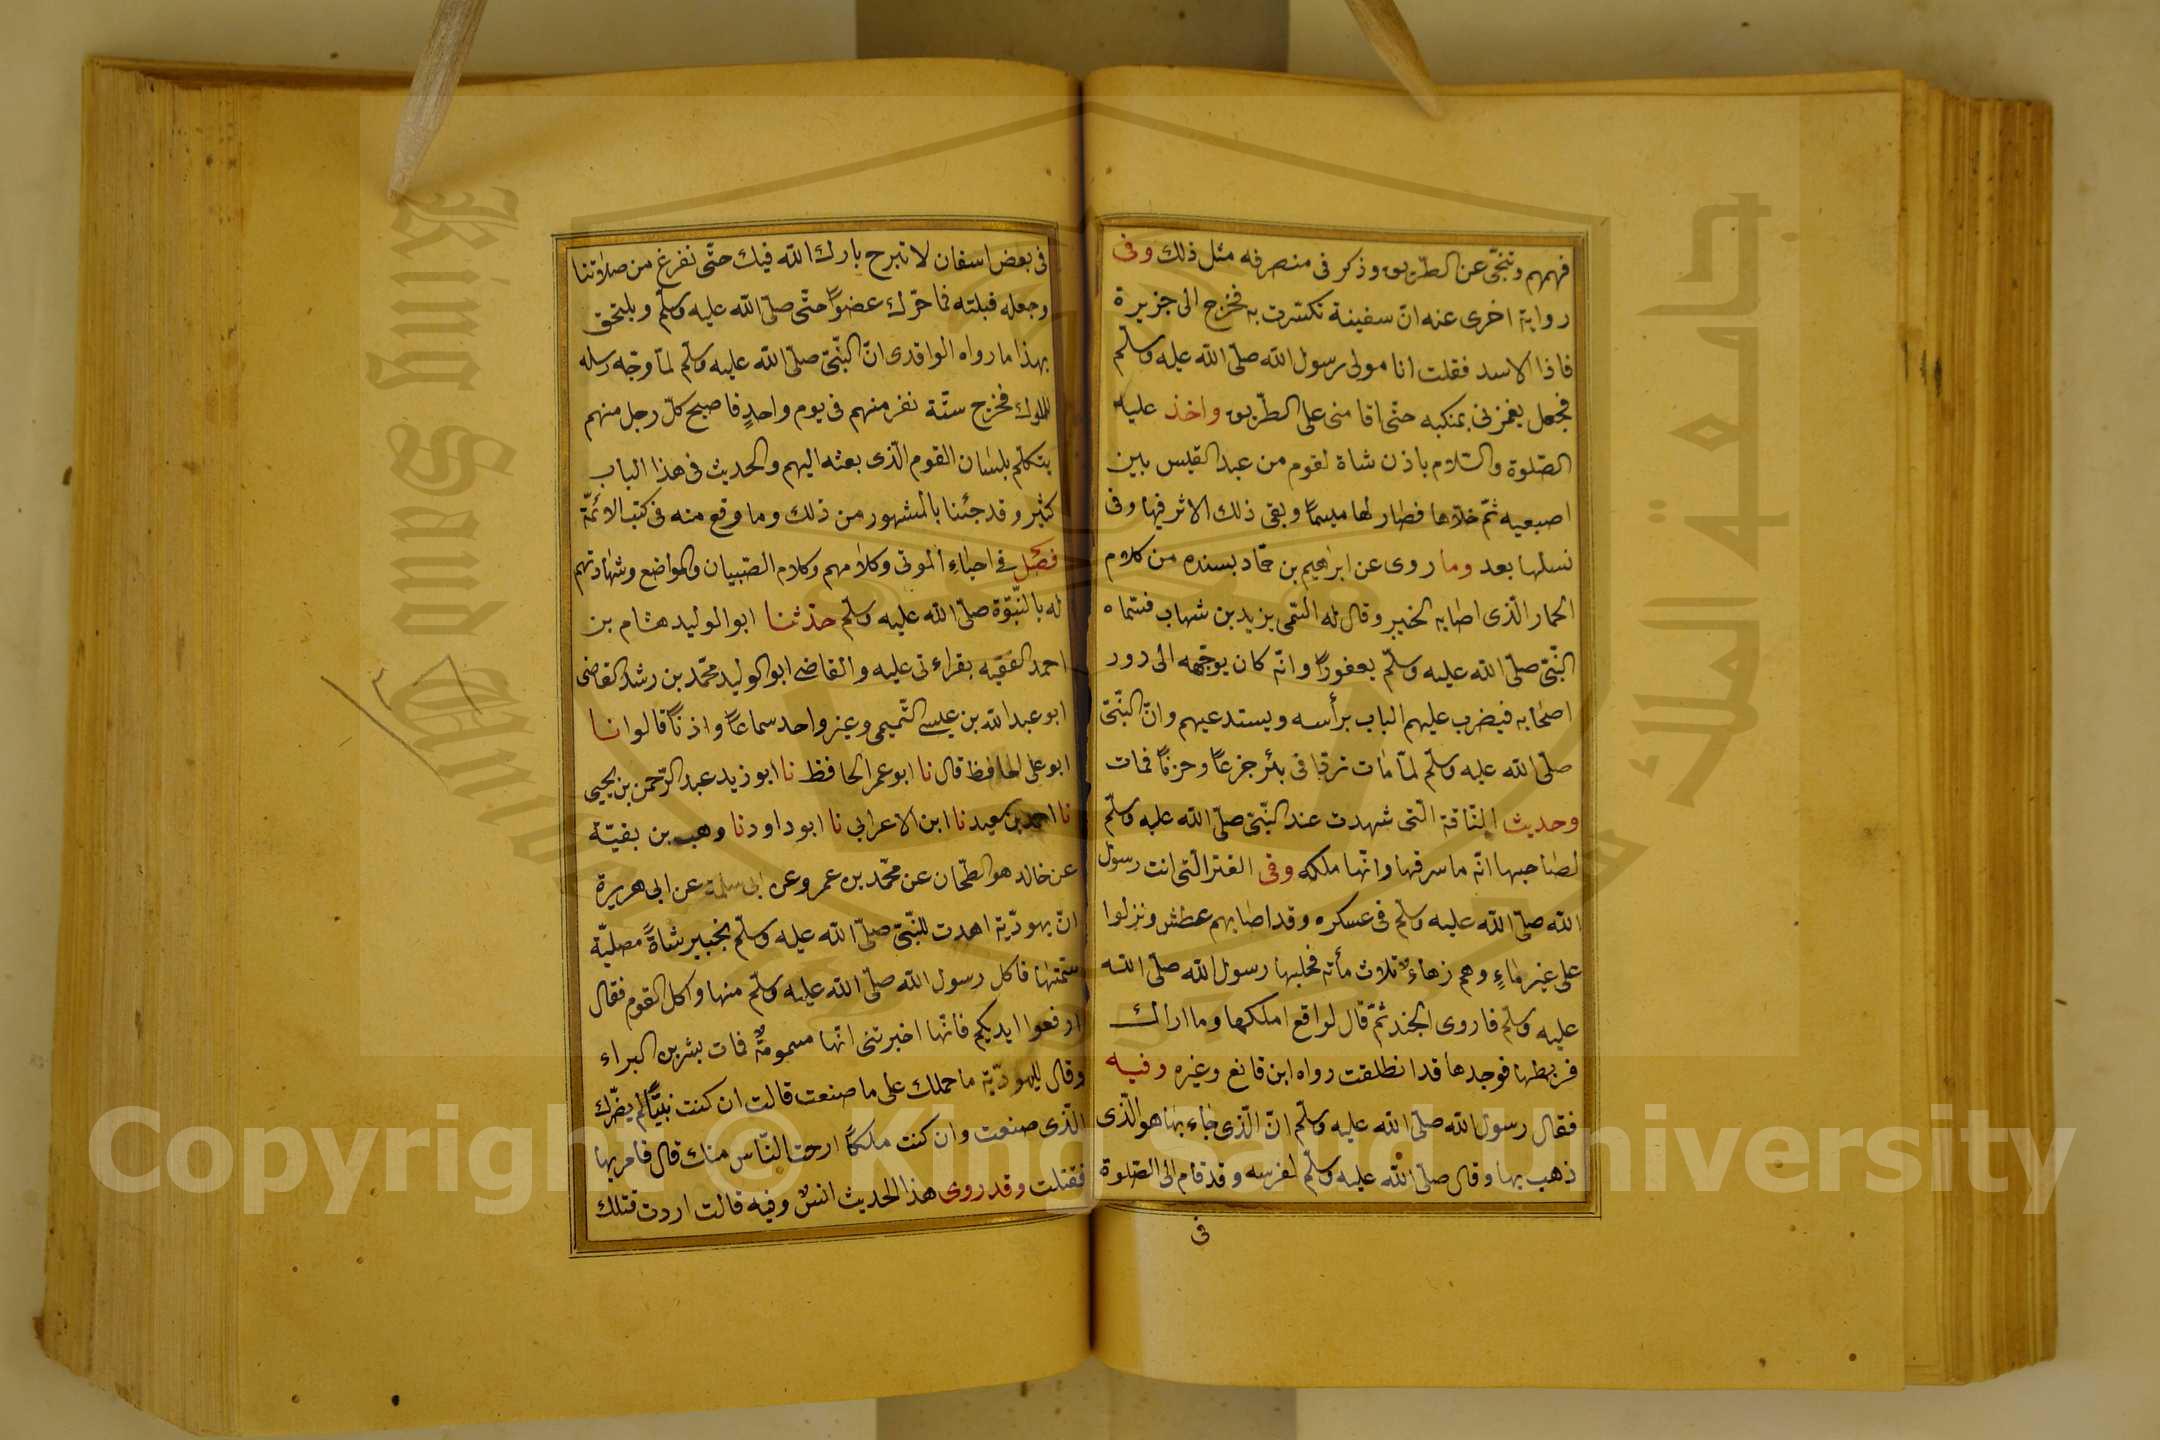 فهمهم وتنحّى عن الطّريق وذكر فى منصرفه مثل ذلك وفى
رواية اخرى عنه انّ سفينة تكسّرت به فخرج الى جزيرة
فاذا الاسد فقلت انا مولى رسول الله صلّى الله عليه وسلّم
فجعل يغمزنى بمنكبه حتّى اقامنى على الطّريق واخذ عليه
الصّلوة والسّلام باذن شاة لقوم من عبد القيس بين
اصبعيه ثمّ خلّاها فصار لها ميسمًا وبقى ذلك الاثر فيها وفى
نسلها بعد وما روى عن ابرٰهيم بن حمّاد بسنده من كلام
الحمار الّذى اصابه بخيبر وقال له اسمى يزيد بن شهاب فسمّاه
النّبىّ صلّى الله عليه وسلّم يعفورًا وانّه كان يوجّهه الى دور
اصحابه فيضرب عليهم الباب برأسه ويستدعيهم وانّ النّبىّ
صلّى الله عليه وسلّم لمّا مات تردّى فى بئر جزعًا وحزنًا فمات
وحديث النّاقة الّتى شهدت عند النّبىّ صلّى الله عليه وسلّم
لصاحبها انّه ما سرقها وانّها ملكه وفى العنز الّتى اتت رسول
الله صلّى الله عليه وسلّم فى عسكره وقد اصابهم عطش ونزلوا
على غير ماءٍ وهم زهاء ثلاث مأئة فحلبها رسول الله صلّى الله
عليه وسلّم فاروى الجند ثمّ قال لرافع املكها وما اراك
فربطها فوجدها قد انطلقت رواه ابن قانع وغيره وفيه
فقال رسول الله صلّى الله عليه وسلّم انّ الّذى جاء بها هو الّذى
ذهب بها وقال صلّى الله عليه وسلّم لفرسه وقد قام الى الصّلوة
فى
فى بعض اسفاره لا تبرح بارك الله فيك حتّى نفرغ من صلاتنا
وجعله قبلته فما حرّك عضوًا حتّى صلّى الله عليه وسلّم ويلتحق
بهذا ما رواه الواقدى انّ النّبىّ صلّى الله عليه وسلّم لمّا وجّه رسله
للملوك فخرج ستّة نفر منهم فى يوم واحدٍ فاصبح كلّ رجل منهم
يتكلّم بلسان القوم الّذى بعثه اليهم والحديث فى هذا الباب
كثير وقد جئنا بالمشهور من ذلك وما وقع منه فى كتب الائمّة
فصل فى احياء الموتى وكلامهم وكلام الصّبيان والمراضع وشهادتهم
له بالنّبوّة صلّى الله عليه وسلّم حدّثنا ابو الوليد هشام بن
احمد الفقيه بقراءتى عليه والقاضى ابو الوليد محمّد بن رشد القاضى
ابو عبد الله بن عيسى التّميمى وغير واحد سماعًا واذنًا قالوا نا
ابو على الحافظ قال نا ابو عمر الحافظ نا ابو زيد عبد الرّحمن بن يحيى
نا احمد بن سعيد نا ابن الاعرابى نا ابو داود نا وهب بن بقيّة
عن خالد هو الطّحان عن محمّد بن عمرو عن ابى سلمة عن ابى هريرة
انّ يهوديّة اهدت للنّبىّ صلّى الله عليه وسلّم بخيبر شاةً مصليّة
سمّتها فاكل رسول الله صلّى الله عليه وسلّم منها واكل القوم فقال
ارفعوا ايديكم فانّها اخبرتنى انّها مسمومة فمات بشر بن البراء
وقال لليهوديّة ما حملك على ما صنعت قالت ان كنت نبيًّا لم يضرّك
الّذى صنعت وان كنت ملكًا ارحت النّاس منك قال فامر بها
فقتلت وقد روى هذا الحديث انس وفيه قالت اردت قتلك
جامعة الملك
King Saud
Copyright © King Saud University